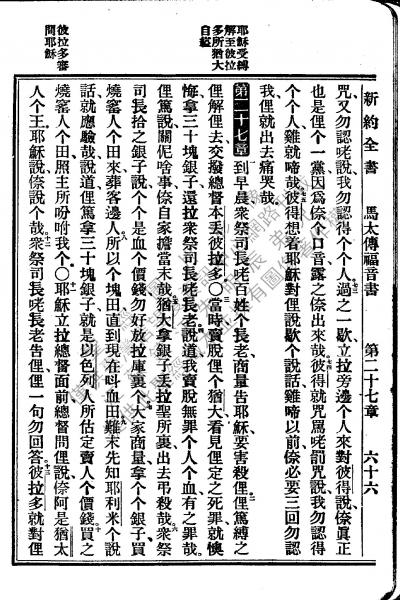 新約全書 馬太傳福音書 第二十七章 六十六
咒又勿認咾說我勿認得个个人過之一歇立拉旁邊个人來對彼得說倷眞正
也是俚个一黨因爲倷个口音露之倷出來哉彼得就咒罵咾罰咒說我勿認得
个个人雞就啼哉彼得想着耶穌對俚說歇个說話雞啼以前倷必要三回勿認
我俚就出去痛哭哉
耶穌受縛
解至彼拉
多所猶大
自縊
第二十七章 到早晨衆祭司長咾百姓个長老商量告耶穌要害殺俚俚篤縛之
俚解俚去交撥總督本丟彼拉多○當時賣脫俚个猶大看見俚定之死罪就懊
悔拿三十塊銀子還拉衆祭司長咾長老說道我賣脫無罪个人个血有之罪哉
俚篤說關伲啥事倷自家擔當末哉猶大拿銀子丟拉聖所裏出去弔殺哉衆祭
司長拾之銀子說个个是血个價錢勿好放拉庫裏个大家商量拿个个銀子買
燒窰人个田來葬客邊人所以个塊田直到現在叫血田難末先知耶利米个說
話就應驗哉說道俚篤拿三十塊銀子就是以色列人所估定賣人个價錢買之
彼拉多審
問耶穌
燒窰人个田照主所吩咐我个○耶穌立拉總督面前總督問俚說倷阿是猶太
人个王耶穌說倷說个哉衆祭司長咾長老告俚俚一句勿回答彼拉多就對俚